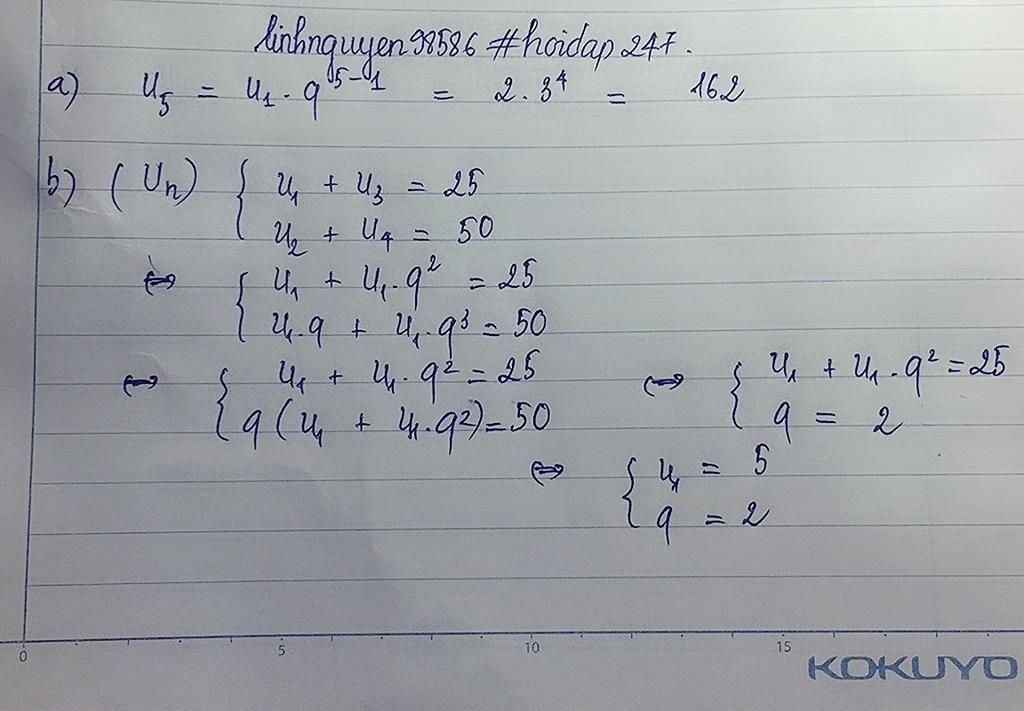 linhnguyen98586 #hoidap247.
a) U₅ = U₁ . q⁵⁻¹ = 2 . 3⁴ = 162
b) (Uₙ) { U₁ + U₃ = 25
U₂ + U₄ = 50
⇔ { U₁ + U₁ . q² = 25
U₁ . q + U₁ . q³ = 50
⇔ { U₁ + U₁ . q² = 25 ⇔ { U₁ + U₁ . q² = 25
q (U₁ + U₁ . q²) = 50 q = 2
⇔ { U₁ = 5
q = 2
0 5 10 15
KOKUYO